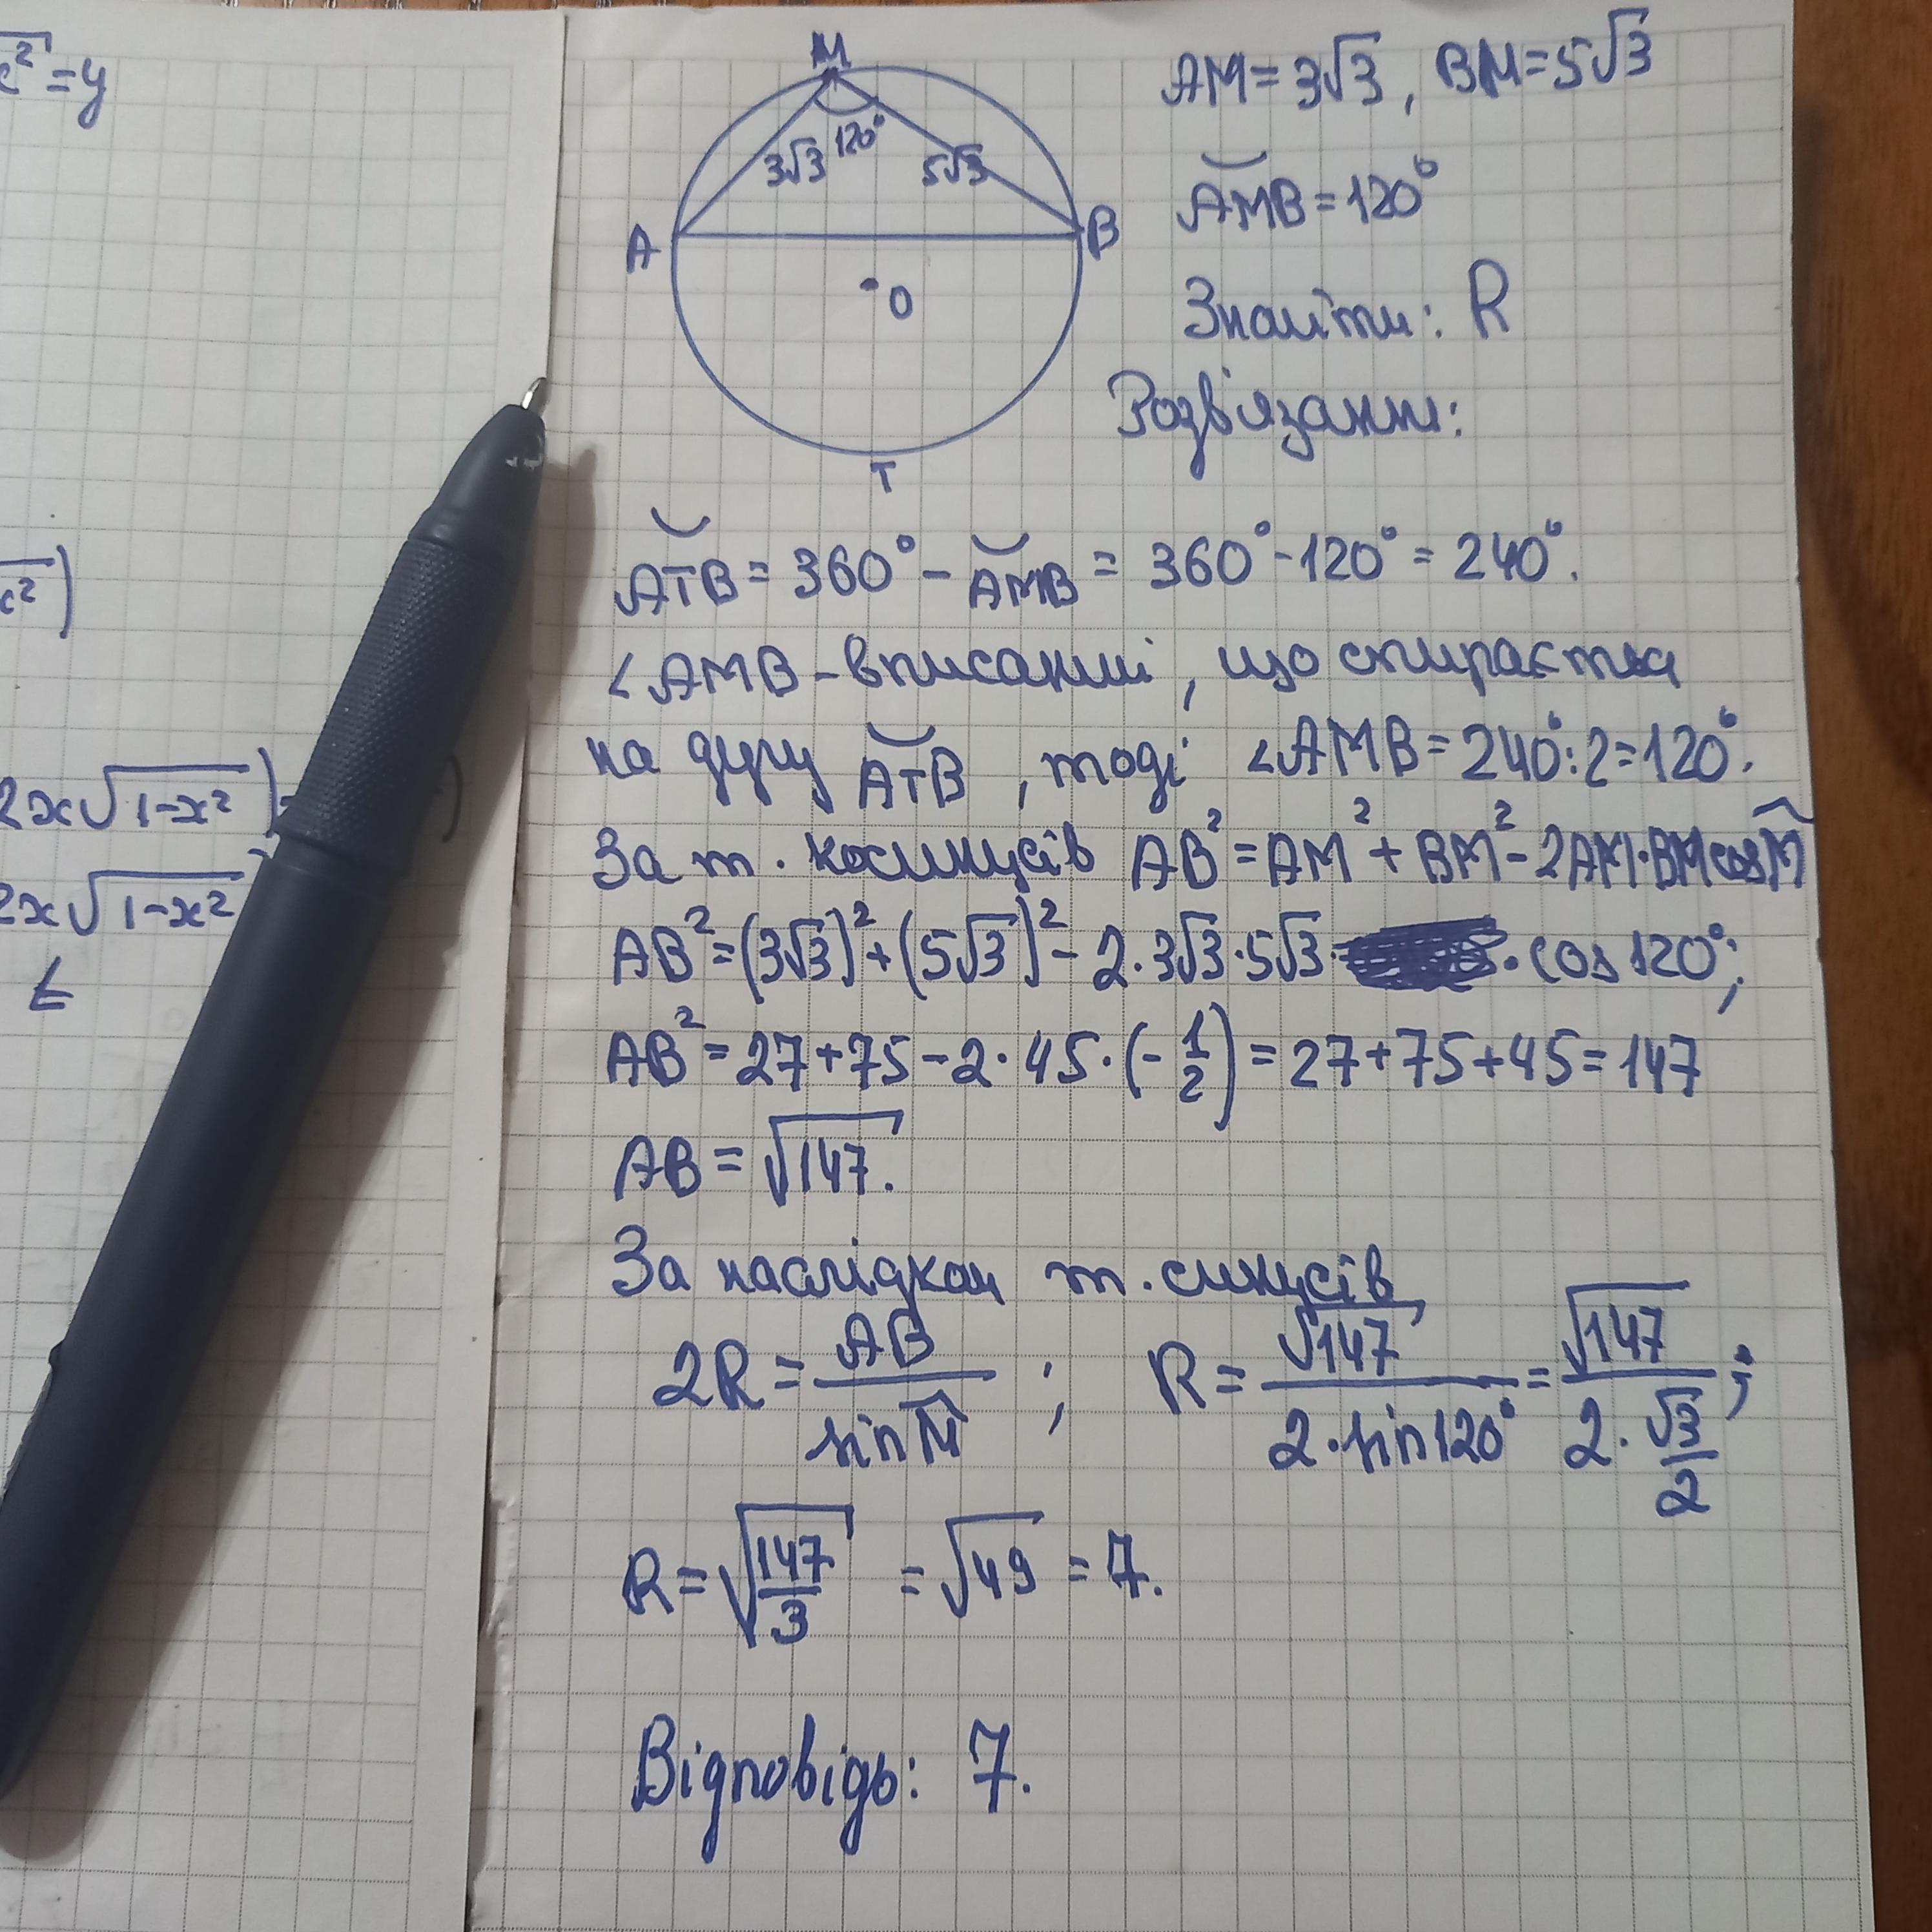 x²=y
x²)
2x√(1-x²)
2x√(1-x²)
≤
M
3√3 120° 5√3
A B
O
T
AM=3√3, BM=5√3
◡AMB=120°
Знайти: R
Розв'язання:
◡ATB=360°-◡AMB=360°-120°=240°.
∠AMB-вписаний, що спирається
на дугу ◡ATB, тоді ∠AMB=240°:2=120°.
За т. косинусів AB²=AM²+BM²-2AM·BMcosM̂
AB²=(3√3)²+(5√3)²-2·3√3·5√3·cos120°;
AB²=27+75-2·45·(-1/2)=27+75+45=147
AB=√147.
За наслідком т. синусів
2R=AB/sinM̂; R=√147/(2·sin120°)=√147/(2·√3/2);
R=√(147/3)=√49=7.
Відповідь: 7.